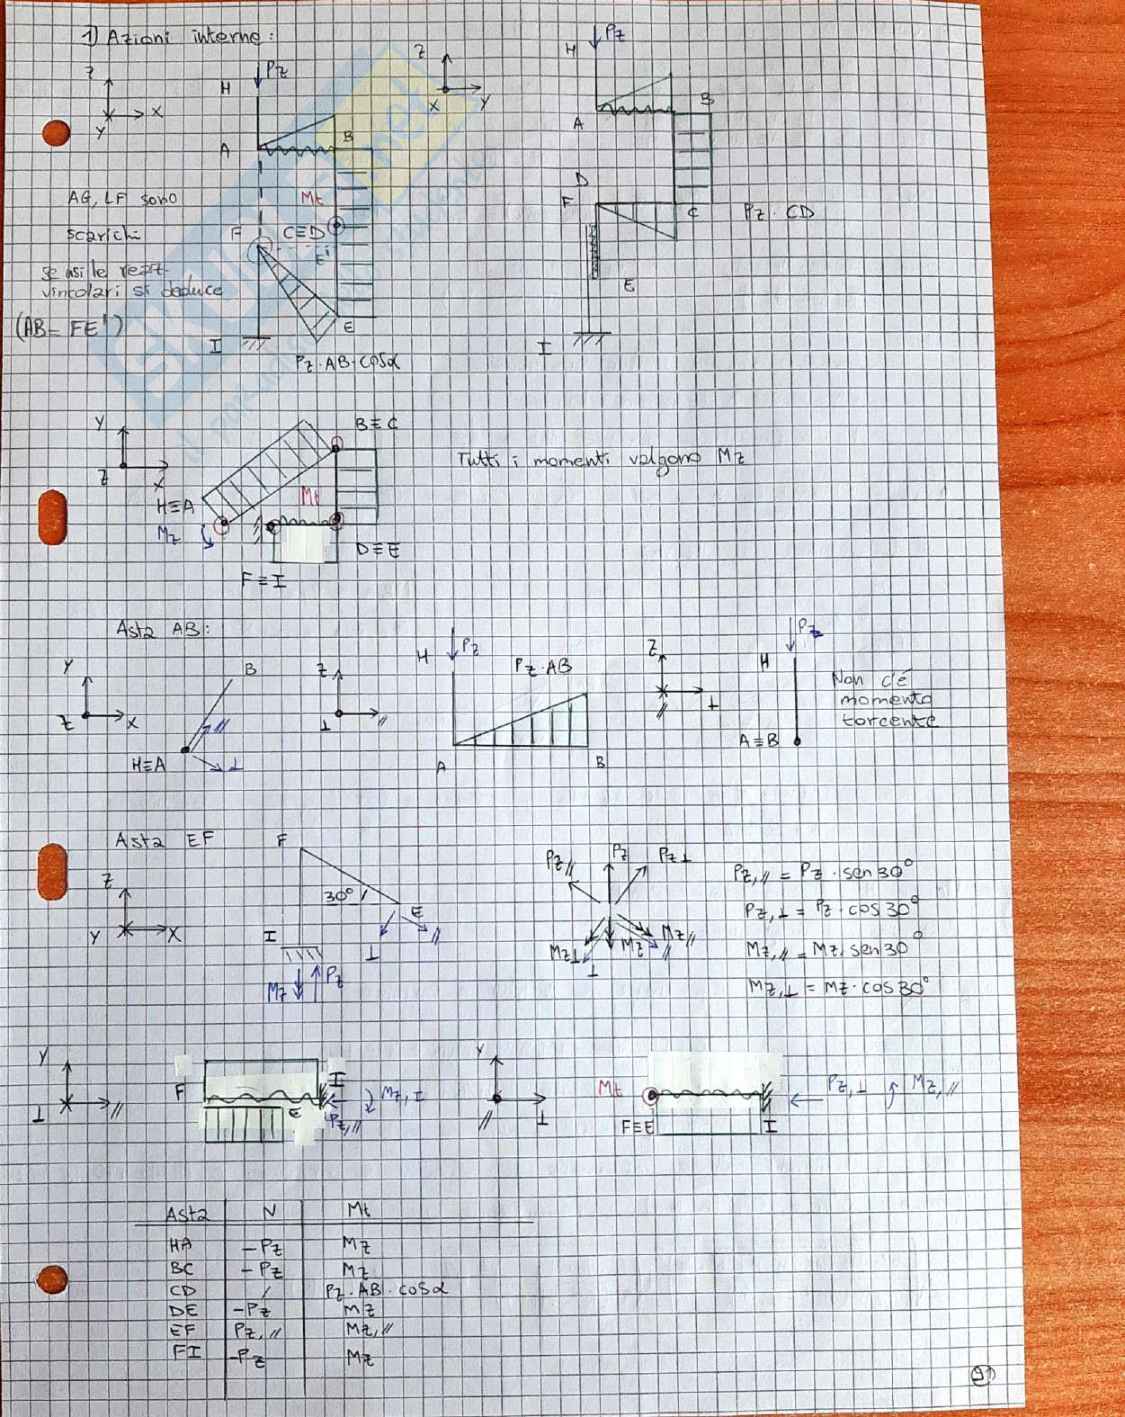 1) Azioni interne:
Z
X
Y
H
Pz
A
B
Z
X
Y
H
Pz
A
B
AG, LF sono
scarichi
Mt
F
C≡D
E'
E
I
Pz·AB·cosα
(AB= FE')
D
F
C
Pz·CD
E
I
Y
Z
X
B≡C
H≡A
Mz
Mt
D≡E
F≡I
Tutti i momenti valgono Mz
Asta AB:
Y
Z
X
B
//
⊥
H≡A
Z
⊥
//
H
Pz
Pz·AB
A
B
Z
//
⊥
H
Pz
A≡B
Non c'é
momento
torcente
Asta EF
Z
Y
X
F
30°
E
⊥
//
I
Mz
Pz
Pz//
Pz
Pz⊥
Mz⊥
Mz
Mz//
//
⊥
Pz,// = Pz·sen30°
Pz,⊥ = Pz·cos30°
Mz,// = Mz·sen30°
Mz,⊥ = Mz·cos30°
Y
⊥
//
F
E
I
Mz,I
Pz,//
Y
//
⊥
Mt
F≡E
I
Pz,⊥
Mz,//
Asta N Mt
HA -Pz Mz
BC -Pz Mz
CD / Pz·AB·cosα
DE -Pz Mz
EF Pz,// Mz,//
FI -Pz Mz